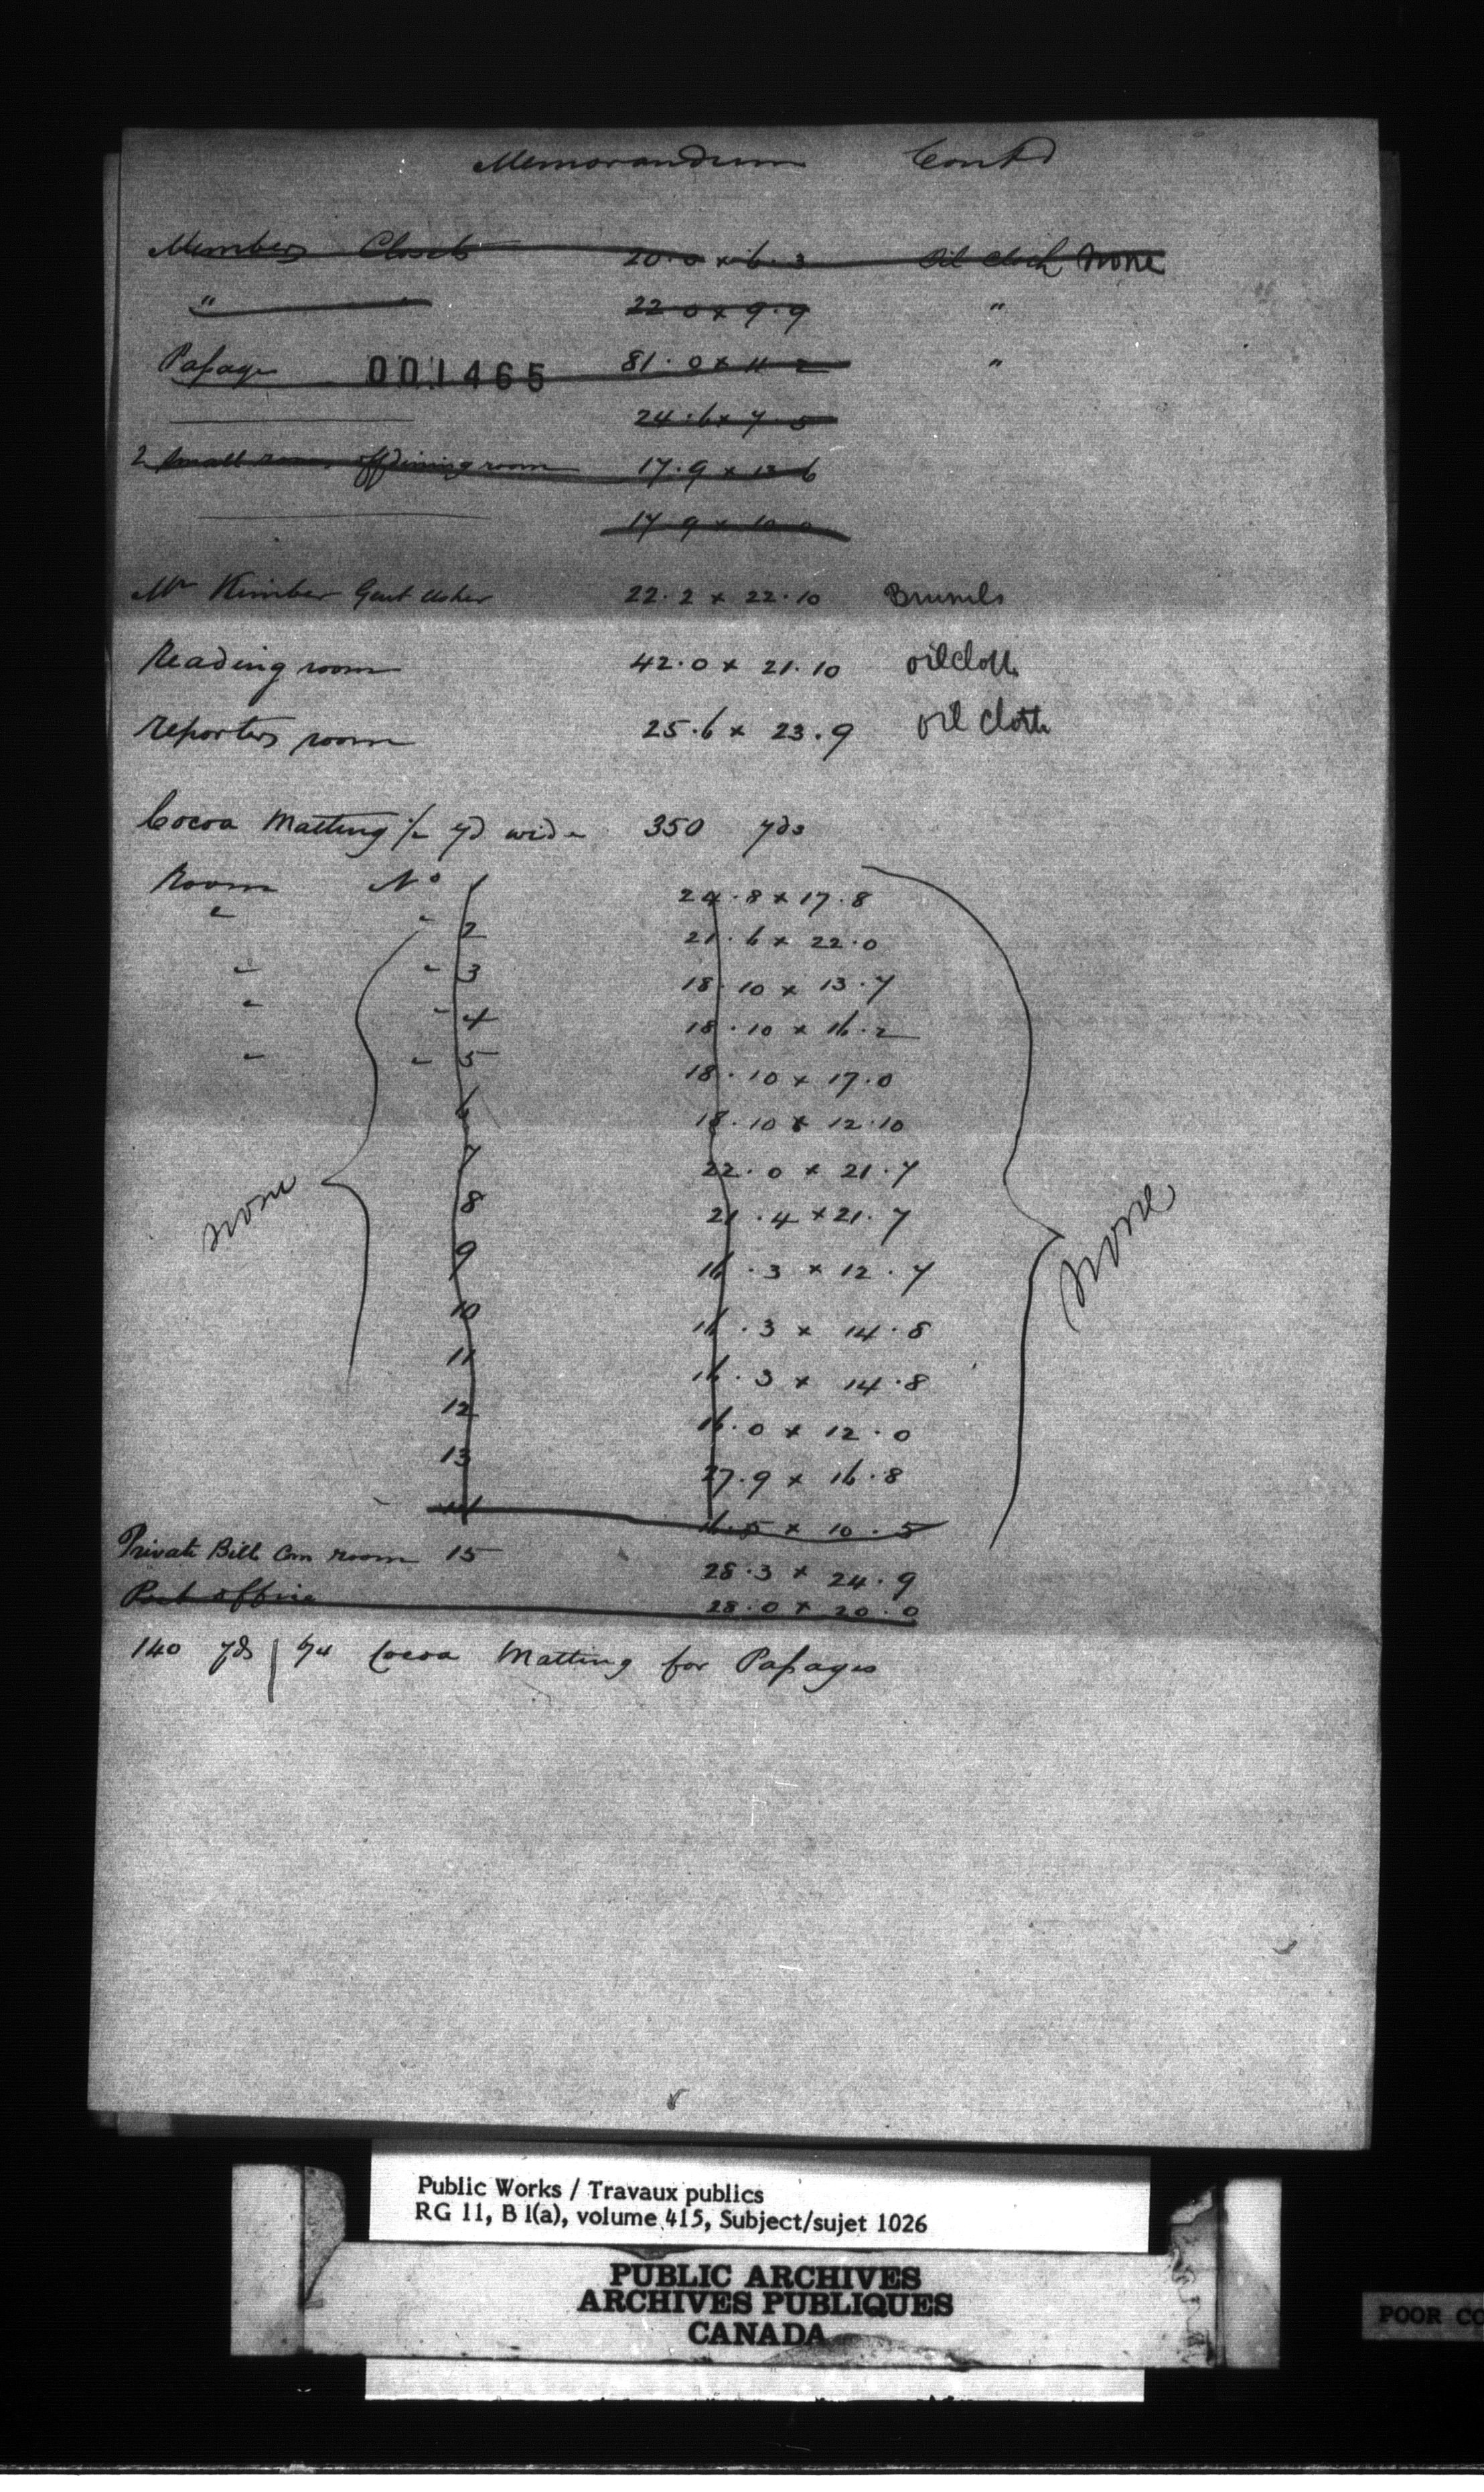 Memorandum Contd
Members Closets 20.0 x 6.3 Oil Cloth none
" 22 0 x 9.9 "
Passage 81.0 x 11 2 "
001465
24.6 x 7.5
2 small rooms off dining room 17.9 x 13 6
17 9 x 10 0
Mr Kimber Gent Usher 22.2 x 22.10 Brussels
Reading room 42.0 x 21.10 oilcloth
reporters room 25.6 x 23.9 oil cloth
Cocoa Matting yd wide 350 yds
Room No 1 24.8 x 17.8
" " 2 21.6 x 22.0
" " 3 18.10 x 13.7
" " 4 18.10 x 16.2
" " 5 18.10 x 17.0
6 18.10 x 12.10
7 22.0 x 21.7
8 21.4 x 21.7
none
none
9 16.3 x 12.7
10 16.3 x 14.8
11 16.3 x 14.8
12 16.0 x 12.0
13 27.9 x 16.8
14 16.5 x 10.5
Private Bill Com room 15 28.3 x 24.9
Post office 28.0 x 20.0
140 yds Cocoa Matting for Passages
Public Works / Travaux publics
RG 11, B 1(a), volume 415, Subject/sujet 1026
PUBLIC ARCHIVES
ARCHIVES PUBLIQUES
CANADA
POOR CO